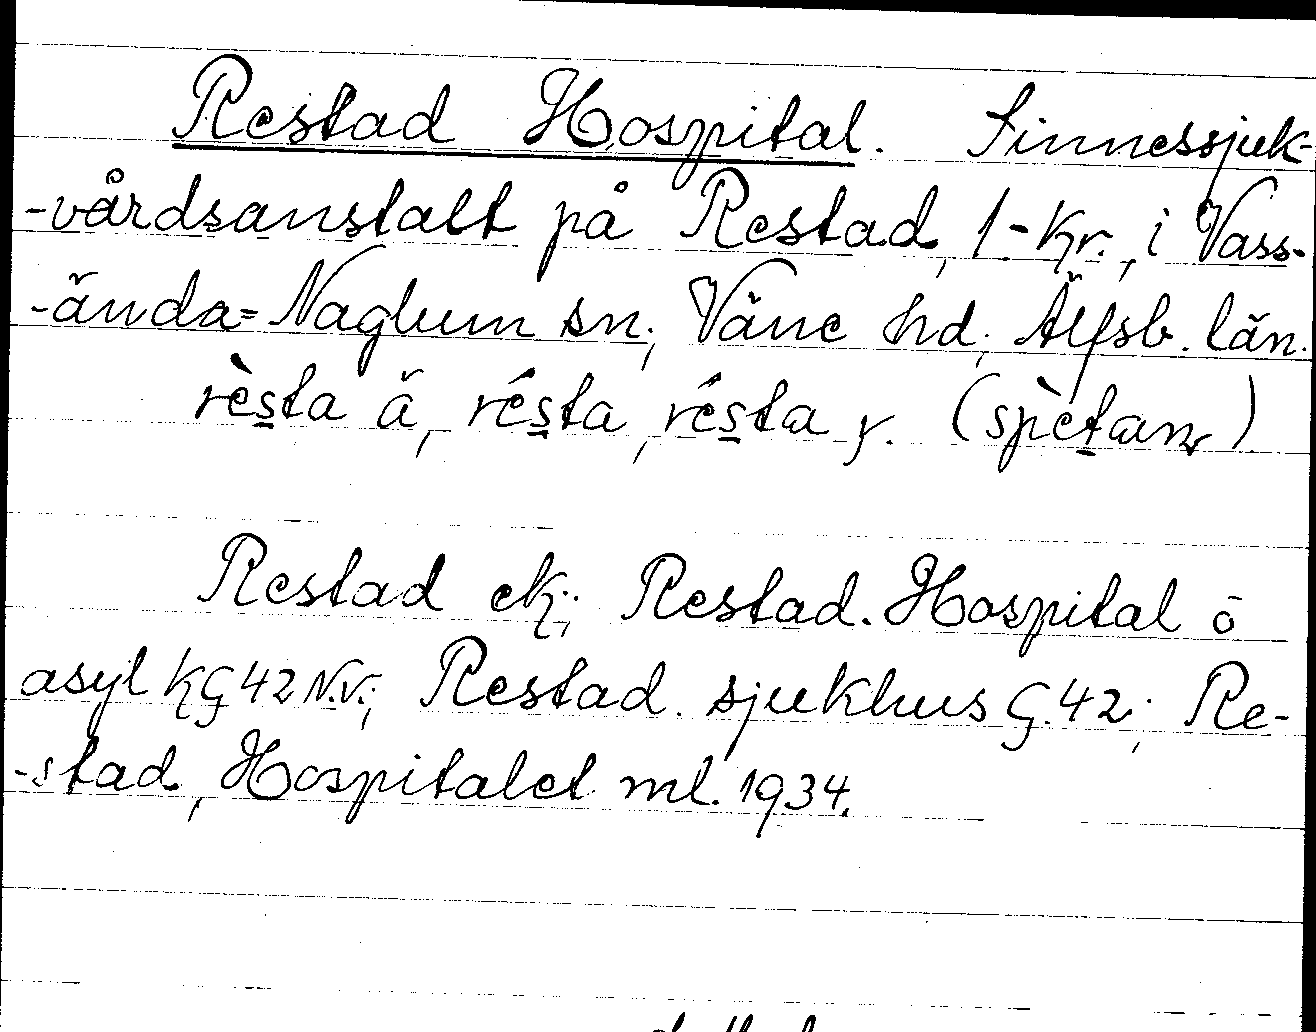 Restad Hospital. Sinnessjuk-
-vårdsanstalt på Restad, 1-Kr., i Vass-
-ända=Naglum sn; Väne hd; Älfsb. län.
rèsta ä, résta, résta y. (spètanr)
Restad ek; Restad. Hospital o
asyl KG42N.V.; Restad. sjukhus G.42; Re-
-stad, Hospitalet ml. 1934.